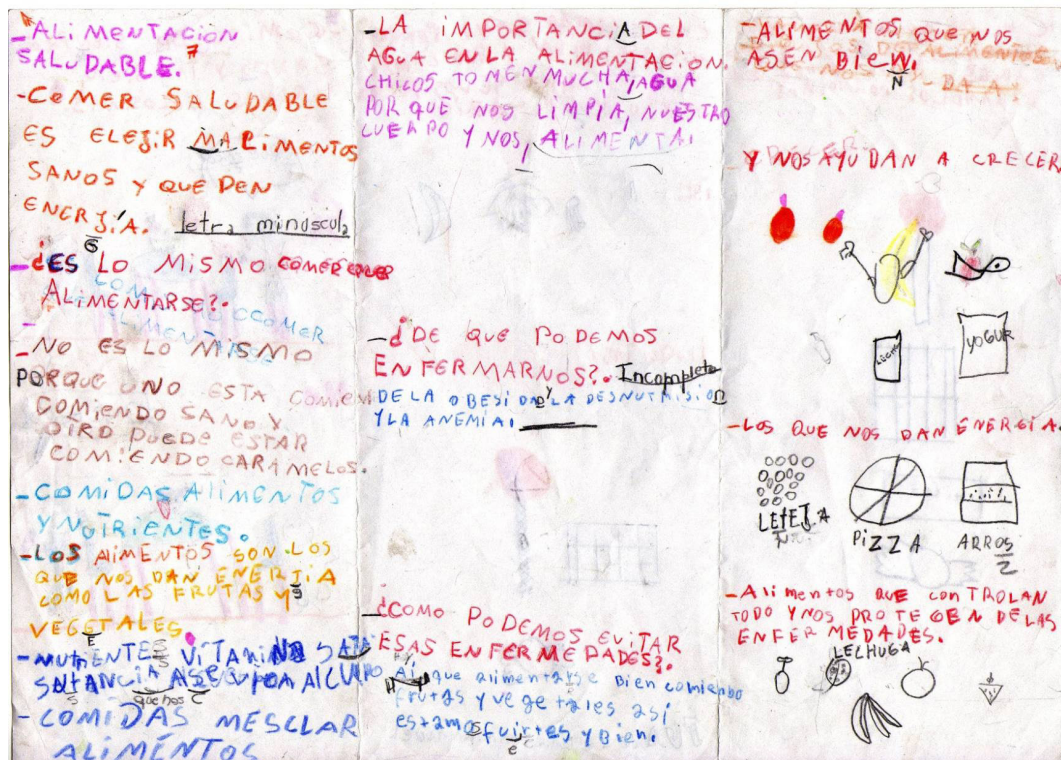 -ALiMENTACION
SALUDABLE.
-COMER SALUDABLE
ES ELEJIR ALIMENTOS
SANOS Y QUE DEN
ENERJÍA. letra minoscula
G
-¿ES LO MISMO COMER QUE
ALIMENTARSE?.
-NO ES LO MISMO
PORQUE UNO ESTA COMIEN
COMIENDO SANO Y
OTRO PUEDE ESTAR
COMIENDO CARAMELOS.
-COMIDAS ALIMENTOS
Y NUTRIENTES.
-LOS ALIMENTOS SON LOS
QUE NOS DAN ENERJIA
g
COMO LAS FRUTAS Y
VEGETALES
E
-NUTIENTE VITANINO
SUTANCIA AL CUERPO
S que hos C
-COMIDAS MESCLAR
ALIMENTOS
-LA IMPORTANCIA DEL
AGUA EN LA ALIMENTACION.
CHICOS TOMEN MUCHA, AGUA
POR QUE NOS LIMPIA, NUESTRO
CUERPO Y NOS, ALIMENTA.
-¿DE QUE PODEMOS
ENFERMARNOS?. Incompleto
DE LA OBESIDAD Y LA DESNUTRISION
Y LA ANEMIA.
-¿COMO PODEMOS EVITAR
ESAS ENFERMEDADES?.
Hay
Ai que alimentarse Bien comiendo
frutas y vegetales asi
estamos fuirtes y Bien.
e
-ALIMENTOS QUE NOS
ASEN BIEN.
N
Y NOS AYUDAN A CRECER
LECHE
YOGUR
-LOS QUE NOS DAN ENERGIA.
LETEJA
N
PIZZA
ARROS
Z
-Alimentos QUE conTROLAN
TODO Y NOS PROTEGEN DE LAS
ENFERMEDADES.
LECHUGA